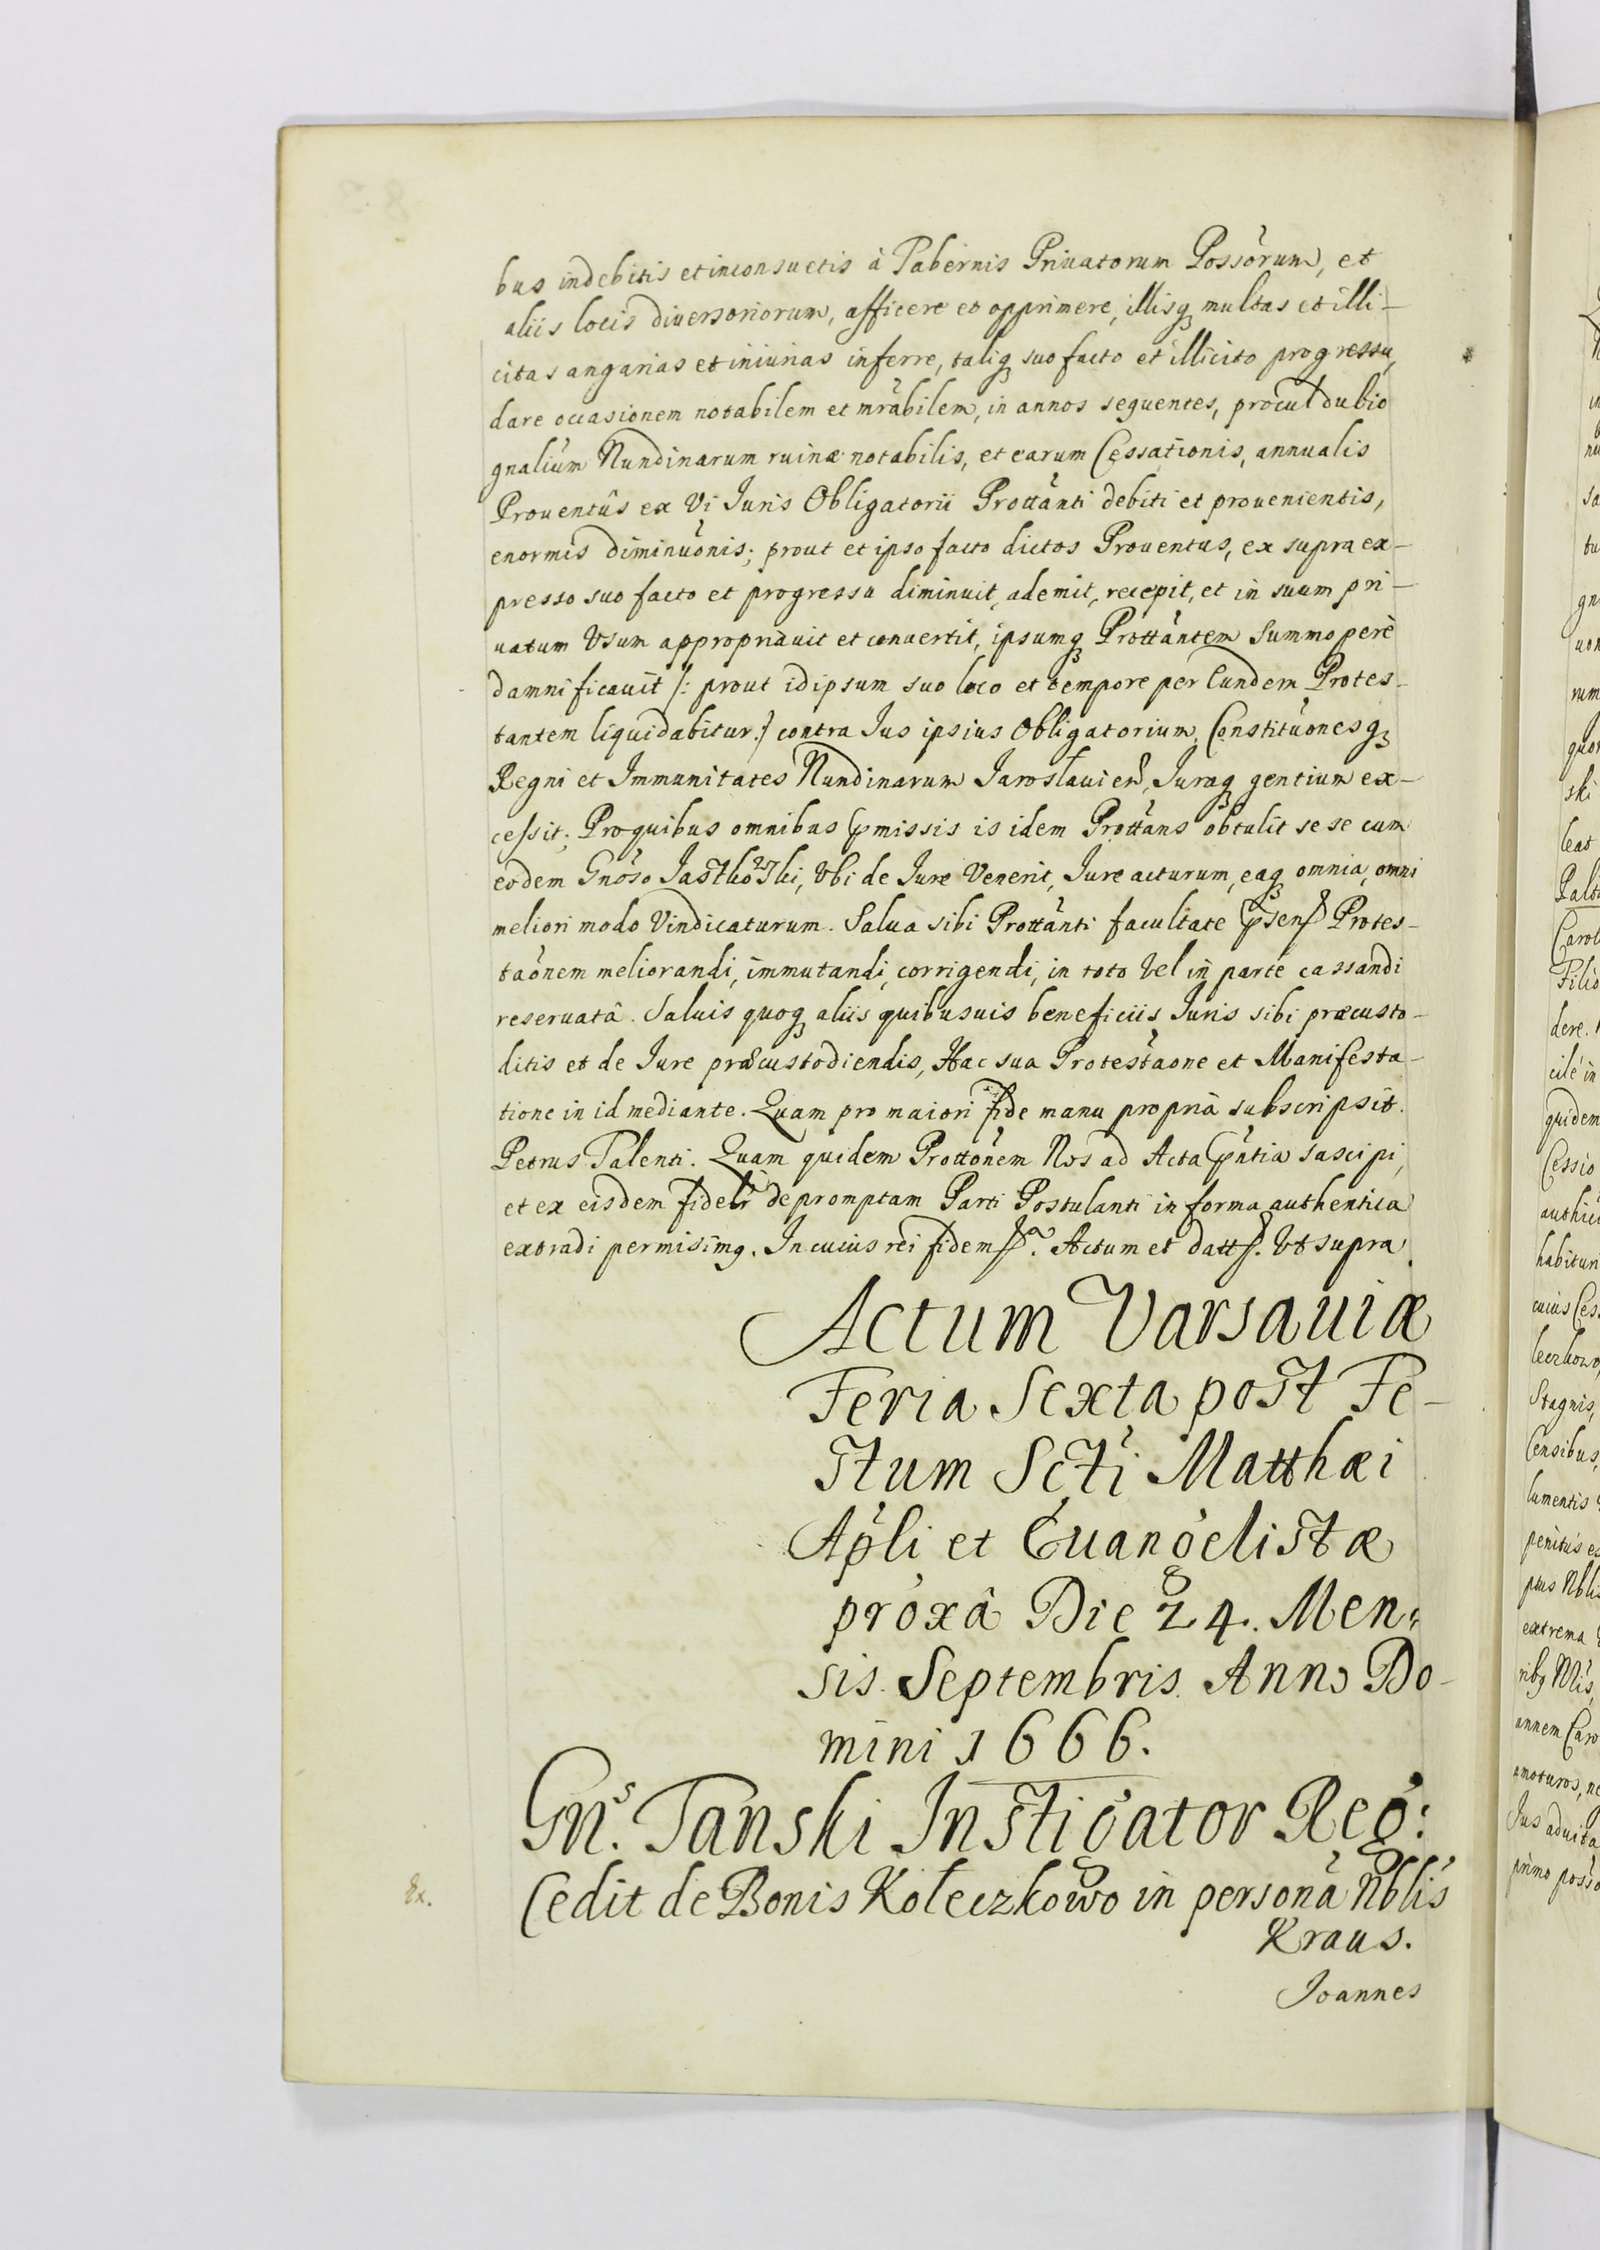 bus indebitis et inconsuetis à Tabernis Priuatorum Possorum, et
aliis locis diuersoriorum, afficere et opprimere, illisq multas et illi-
citas angarias et iniurias inferre, taliq suo facto et illicito progressu,
dare occasionem notabilem et mrabilem, in annos sequentes, procul dubio
gnalium Nundinarum ruinæ notabilis, et earum Cessationis, annualis
Prouentûs ex Vi Juris Obligatorii Prottanti debiti et prouenientis,
enormis diminuonis; prout et ipso facto dictos Prouentus, ex supra ex-
presso suo facto et progressu diminuit, ademit, recepit, et in suum pri-
uatum Vsum appropriauit et conuertit, ipsumq Prottantem Summopere
damnificauit /: prout id ipsum suo loco et tempore per Eundem Protes-
tantem liquidabitur :/ contra Jus ipsius Obligatorium, Constituonesq
Regni et Immunitates Nundinarum Jaroslauien, Juraq gentium ex-
cessit; Pro quibus omnibus pmissis is idem Prottans obtulit se se cum
eodem Gnoso Jastkowski, Vbi de Jure Venerit, Jure acturum, eaq omnia, omni
meliori modo Vindicaturum. Salua sibi Prottanti facultate psens Protes-
taonem meliorandi, immutandi, corrigendi, in toto Vel in parte cassandi
reseruatâ. Saluis quoq aliis quibusuis beneficiis Juris sibi præcusto-
ditis et de Jure præcustodiendis, Hac sua Protestaone et Manifesta-
tione in id mediante. Quam pro maiori fide manu propria subscripsit.
Petrus Talenti. Quam quidem Prottonem Nos ad Acta pntia suscipi,
et ex eisdem fideli depromptam Parti Postulanti in forma authentica
extradi permisimq. In cuius rei fidem. Actum et datt. Vt supra.
Actum Varsauiæ
Feria Sexta post Fe-
stum Scti Matthæi
Apli et Euangelistæ
proxâ Die 24. Men-
sis Septembris Anno Do-
mini 1666.
Gns. Tanski Instigator Reg:
Ex. Cedit de Bonis Kołeczkowo in persona Nblis
Kraus.
Joannes